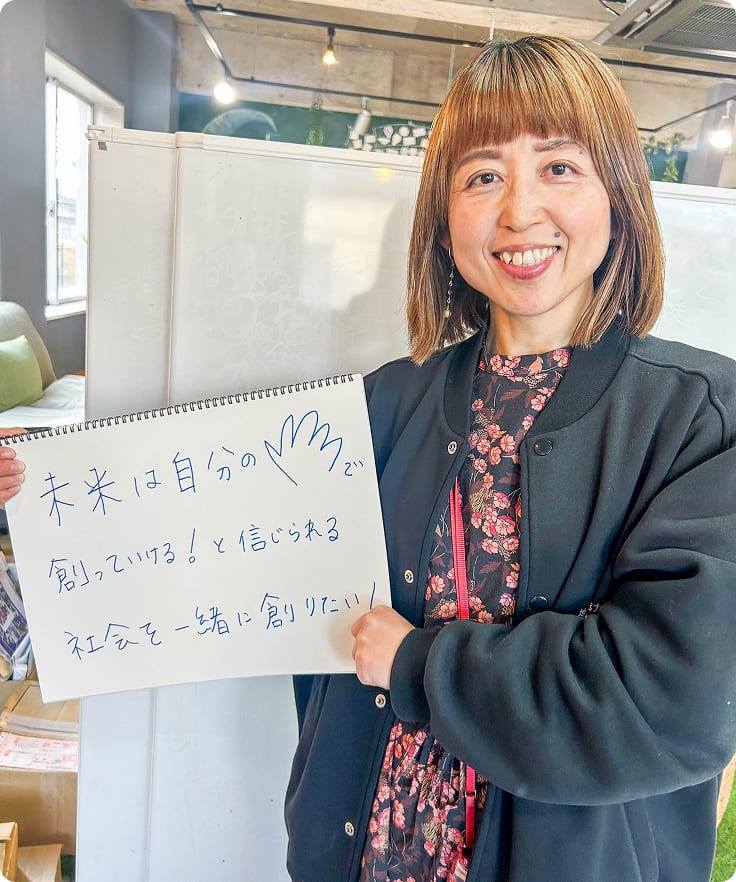 未来は自分ので
創っていける！と信じられる
社会を一緒に創りたい！